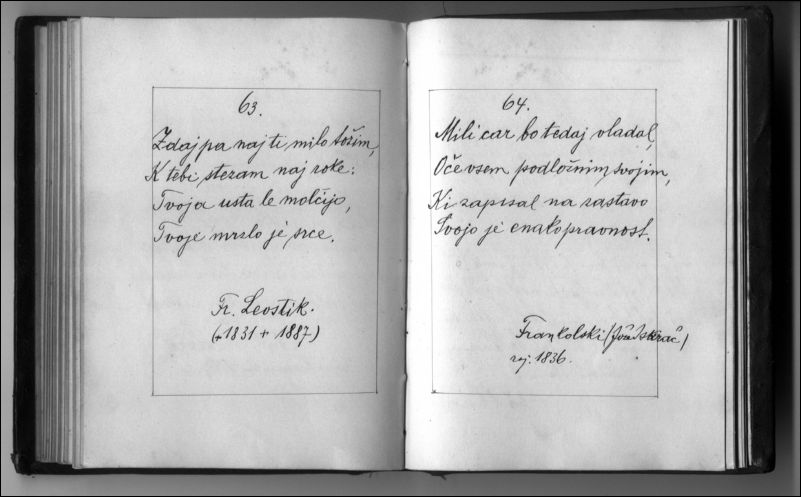 63.
Zdaj pa naj ti milo tožim,
K tebi stezam naj roke:
Tvoja usta le molčijo,
Tvoje mrzlo je srce.
Fr. Levstik.
(* 1831 + 1887)
64.
Mili car bo tedaj vladal,
Oče vsem podložnim svojim,
Ki zapisal na zastavo
Svojo je enakopravnost.
Frankolski
roj. 1836.